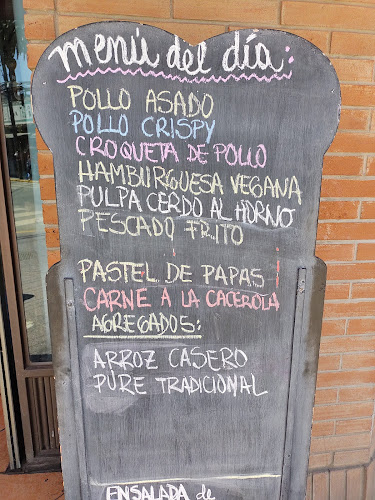 menú del día:
POLLO ASADO
POLLO CRISPY
CROQUETA DE POLLO
HAMBURGUESA VEGANA
PULPA CERDO AL HORNO
PESCADO FRITO
PASTEL DE PAPAS
CARNE A LA CACEROLA
AGREGADOS:
ARROZ CASERO
PURE TRADICIONAL
ENSALADA de